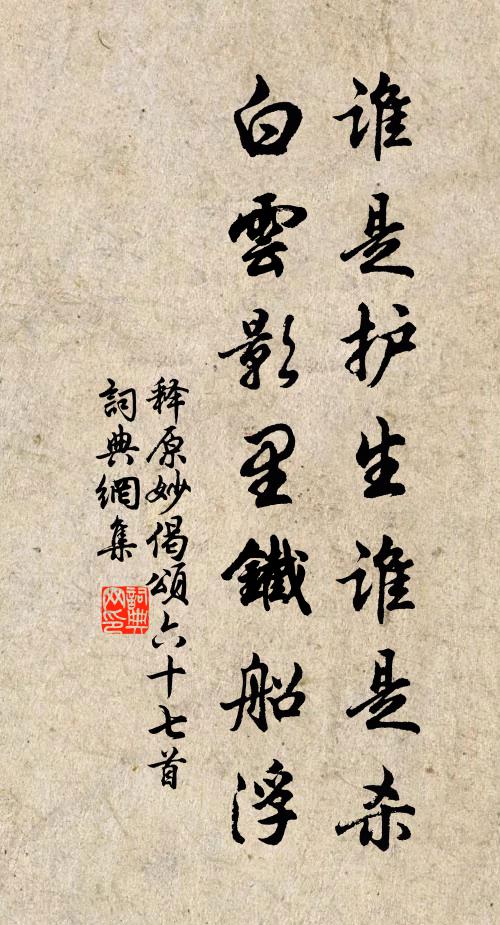 谁是护生谁是杀
白雲影里鐵船浮
释原妙偈頌六十七首
詞典網集
詞典网印